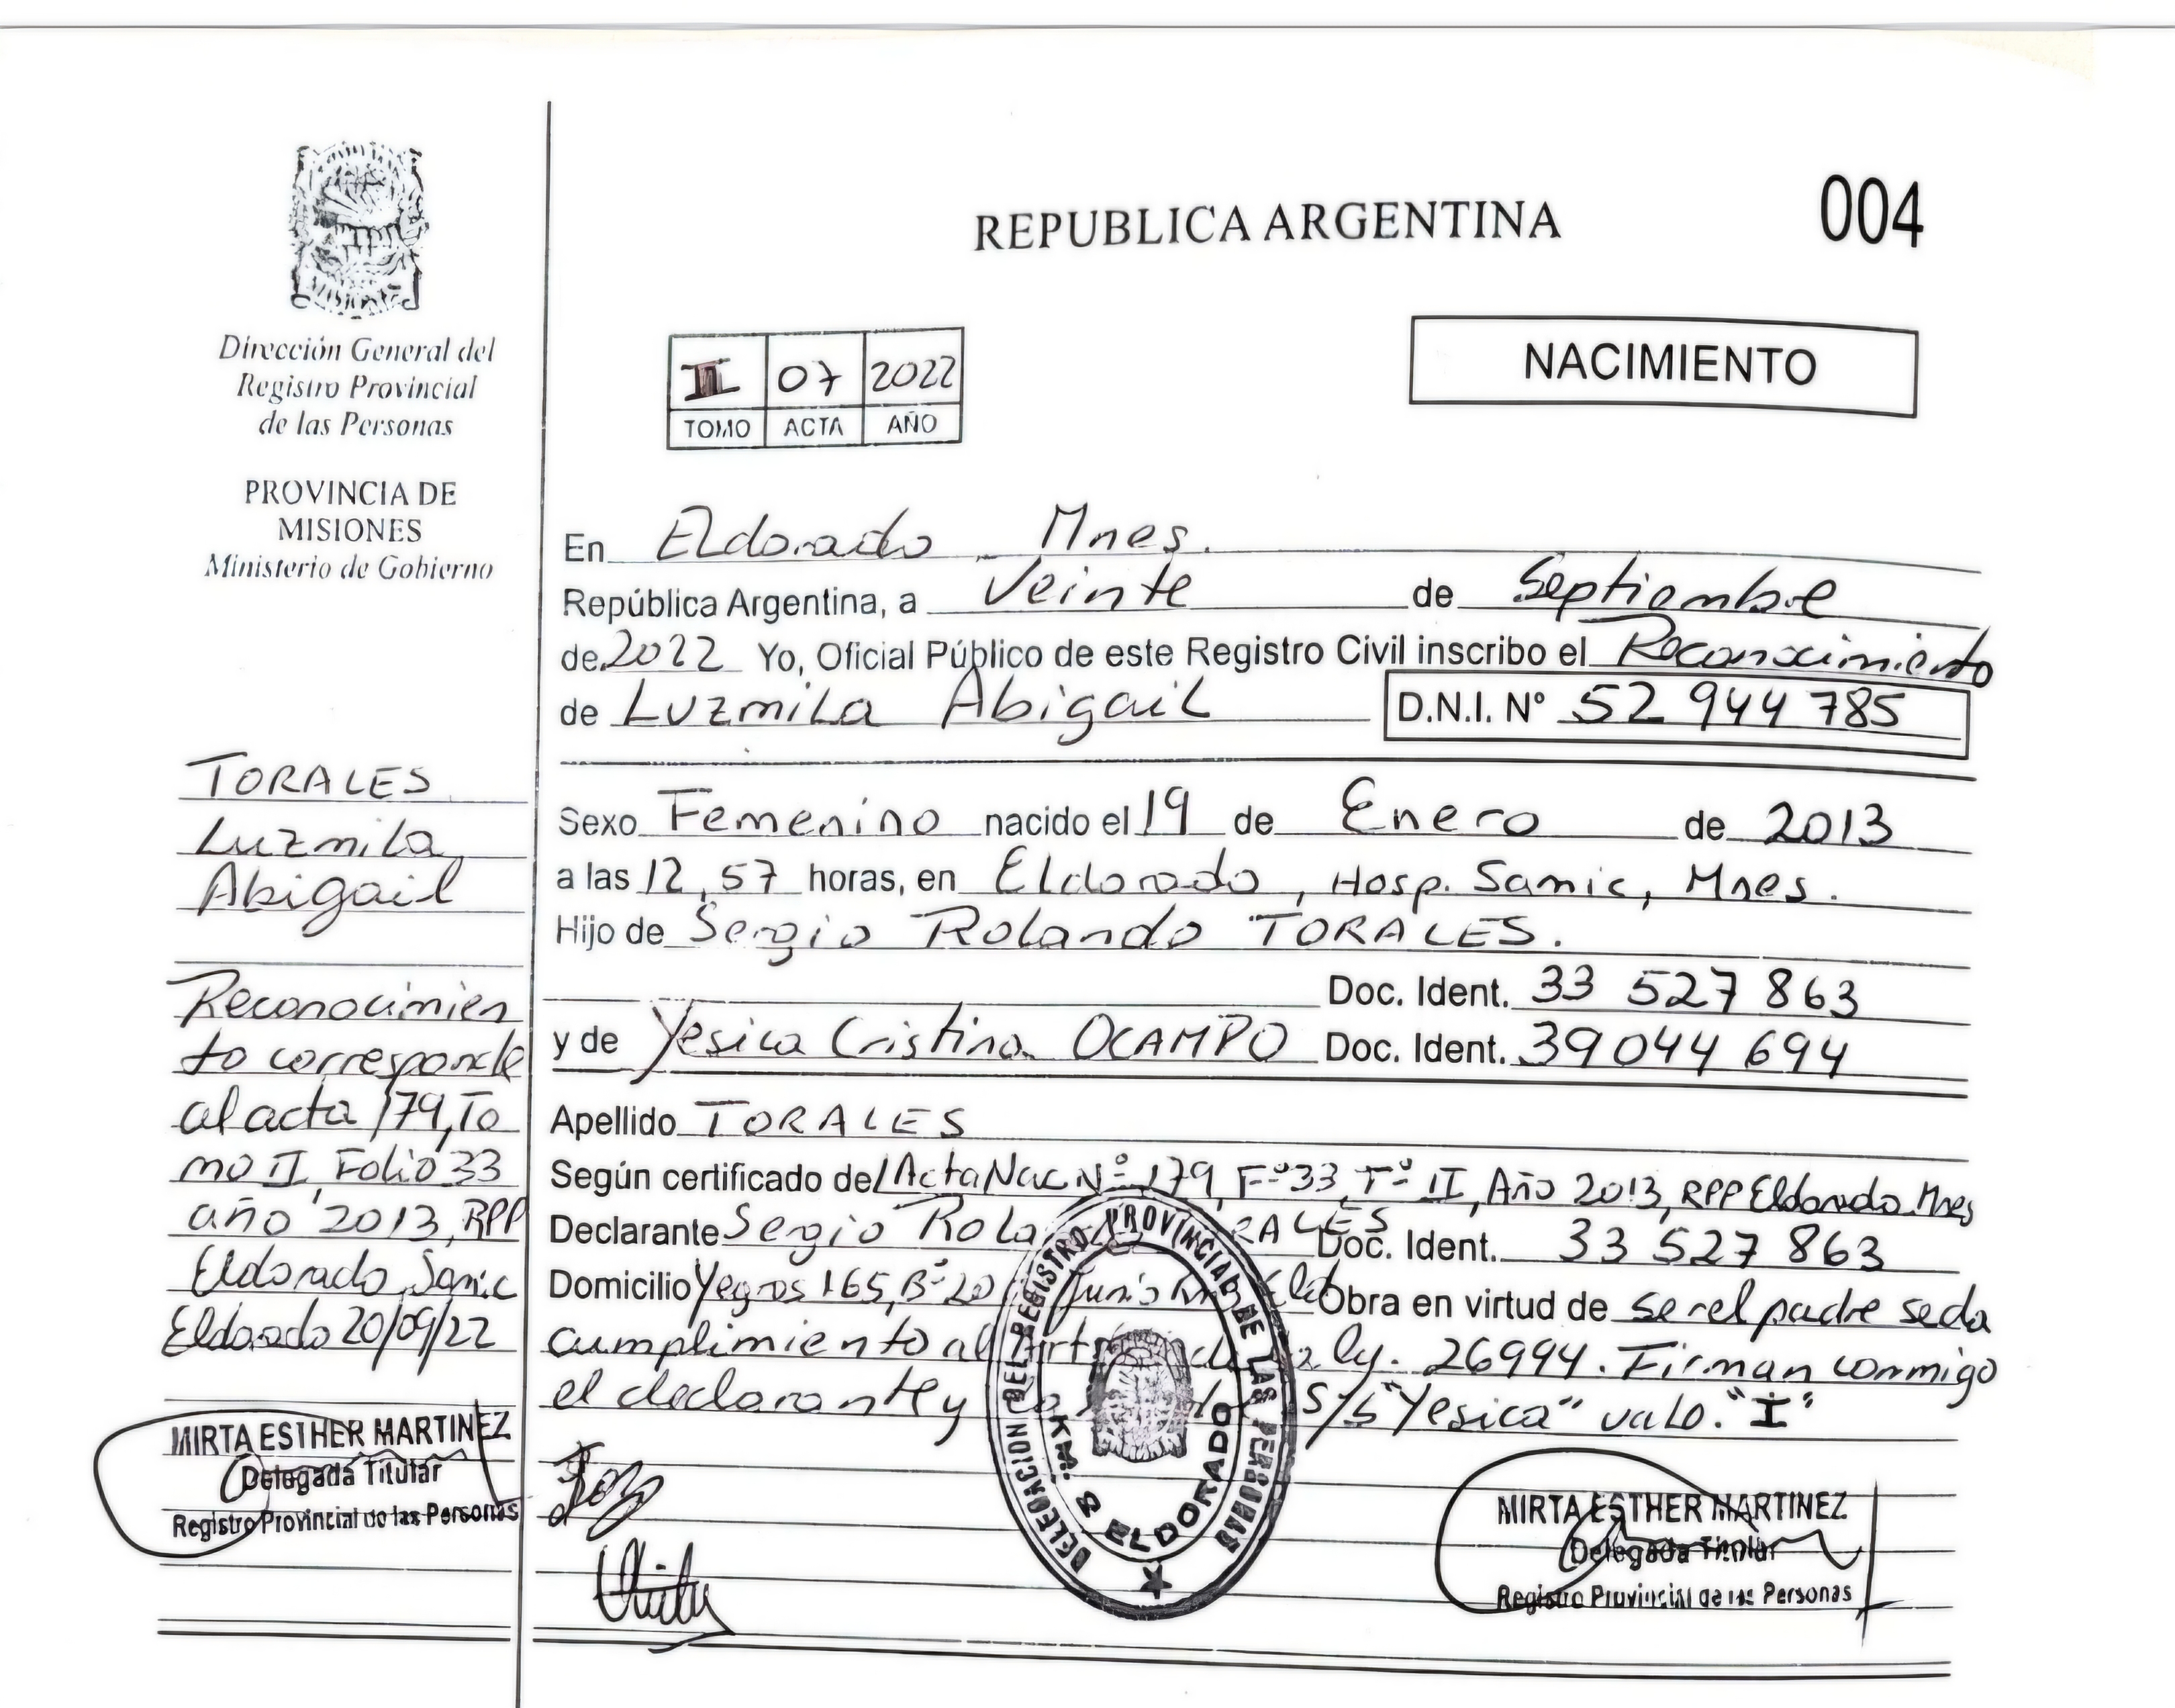 REPUBLICA ARGENTINA
004
Dirección General del
Registro Provincial
de las Personas
PROVINCIA DE
MISIONES
Ministerio de Gobierno
NACIMIENTO
07 2022
TOMO ACTA AÑO
En Eldorado Mnes.
República Argentina, a Veinte de Septiembre
de 2022 Yo, Oficial Público de este Registro Civil inscribo el Reconocimiento
de Luzmila Abigail D.N.I. Nº 52 944 785
Sexo Femenino nacido el 19 de Enero de 2013
a las 12,57 horas, en Eldorado, Hosp. Samic, Mnes.
Hijo de Sergio Rolando TORALES.
Doc. Ident. 33 527 863
y de Yesica Cristina OCAMPO Doc. Ident. 39044 694
Apellido TORALES
Según certificado del Acta Nac Nº 179, Fº 33, Tº II, Año 2013, RPP Eldorado Mnes
Declarante Sergio Doc. Ident. 33 527 863
Domicilio Yegros 165, Bº 20 Junio Obra en virtud de ser el padre se da
cumplimiento al ly. 26994. Firman conmigo
el declarante y S/b "Yesica" vale. "I"
TORALES
Luzmila
Abigail
Reconocimien
to corresponde
al acta 179, To
mo II, Folio 33
año 2013, RPP
Eldorado, Samic
Eldorado 20/09/22
MIRTA ESTHER MARTINEZ
Delegada Titular
Registro Provincial de las Personas
DELEGACION DEL REGISTRO PROVINCIAL DE LAS PERSONAS
KM. 8 ELDORADO
MIRTA ESTHER MARTINEZ
Delegada Titular
Registro Provincial de las Personas